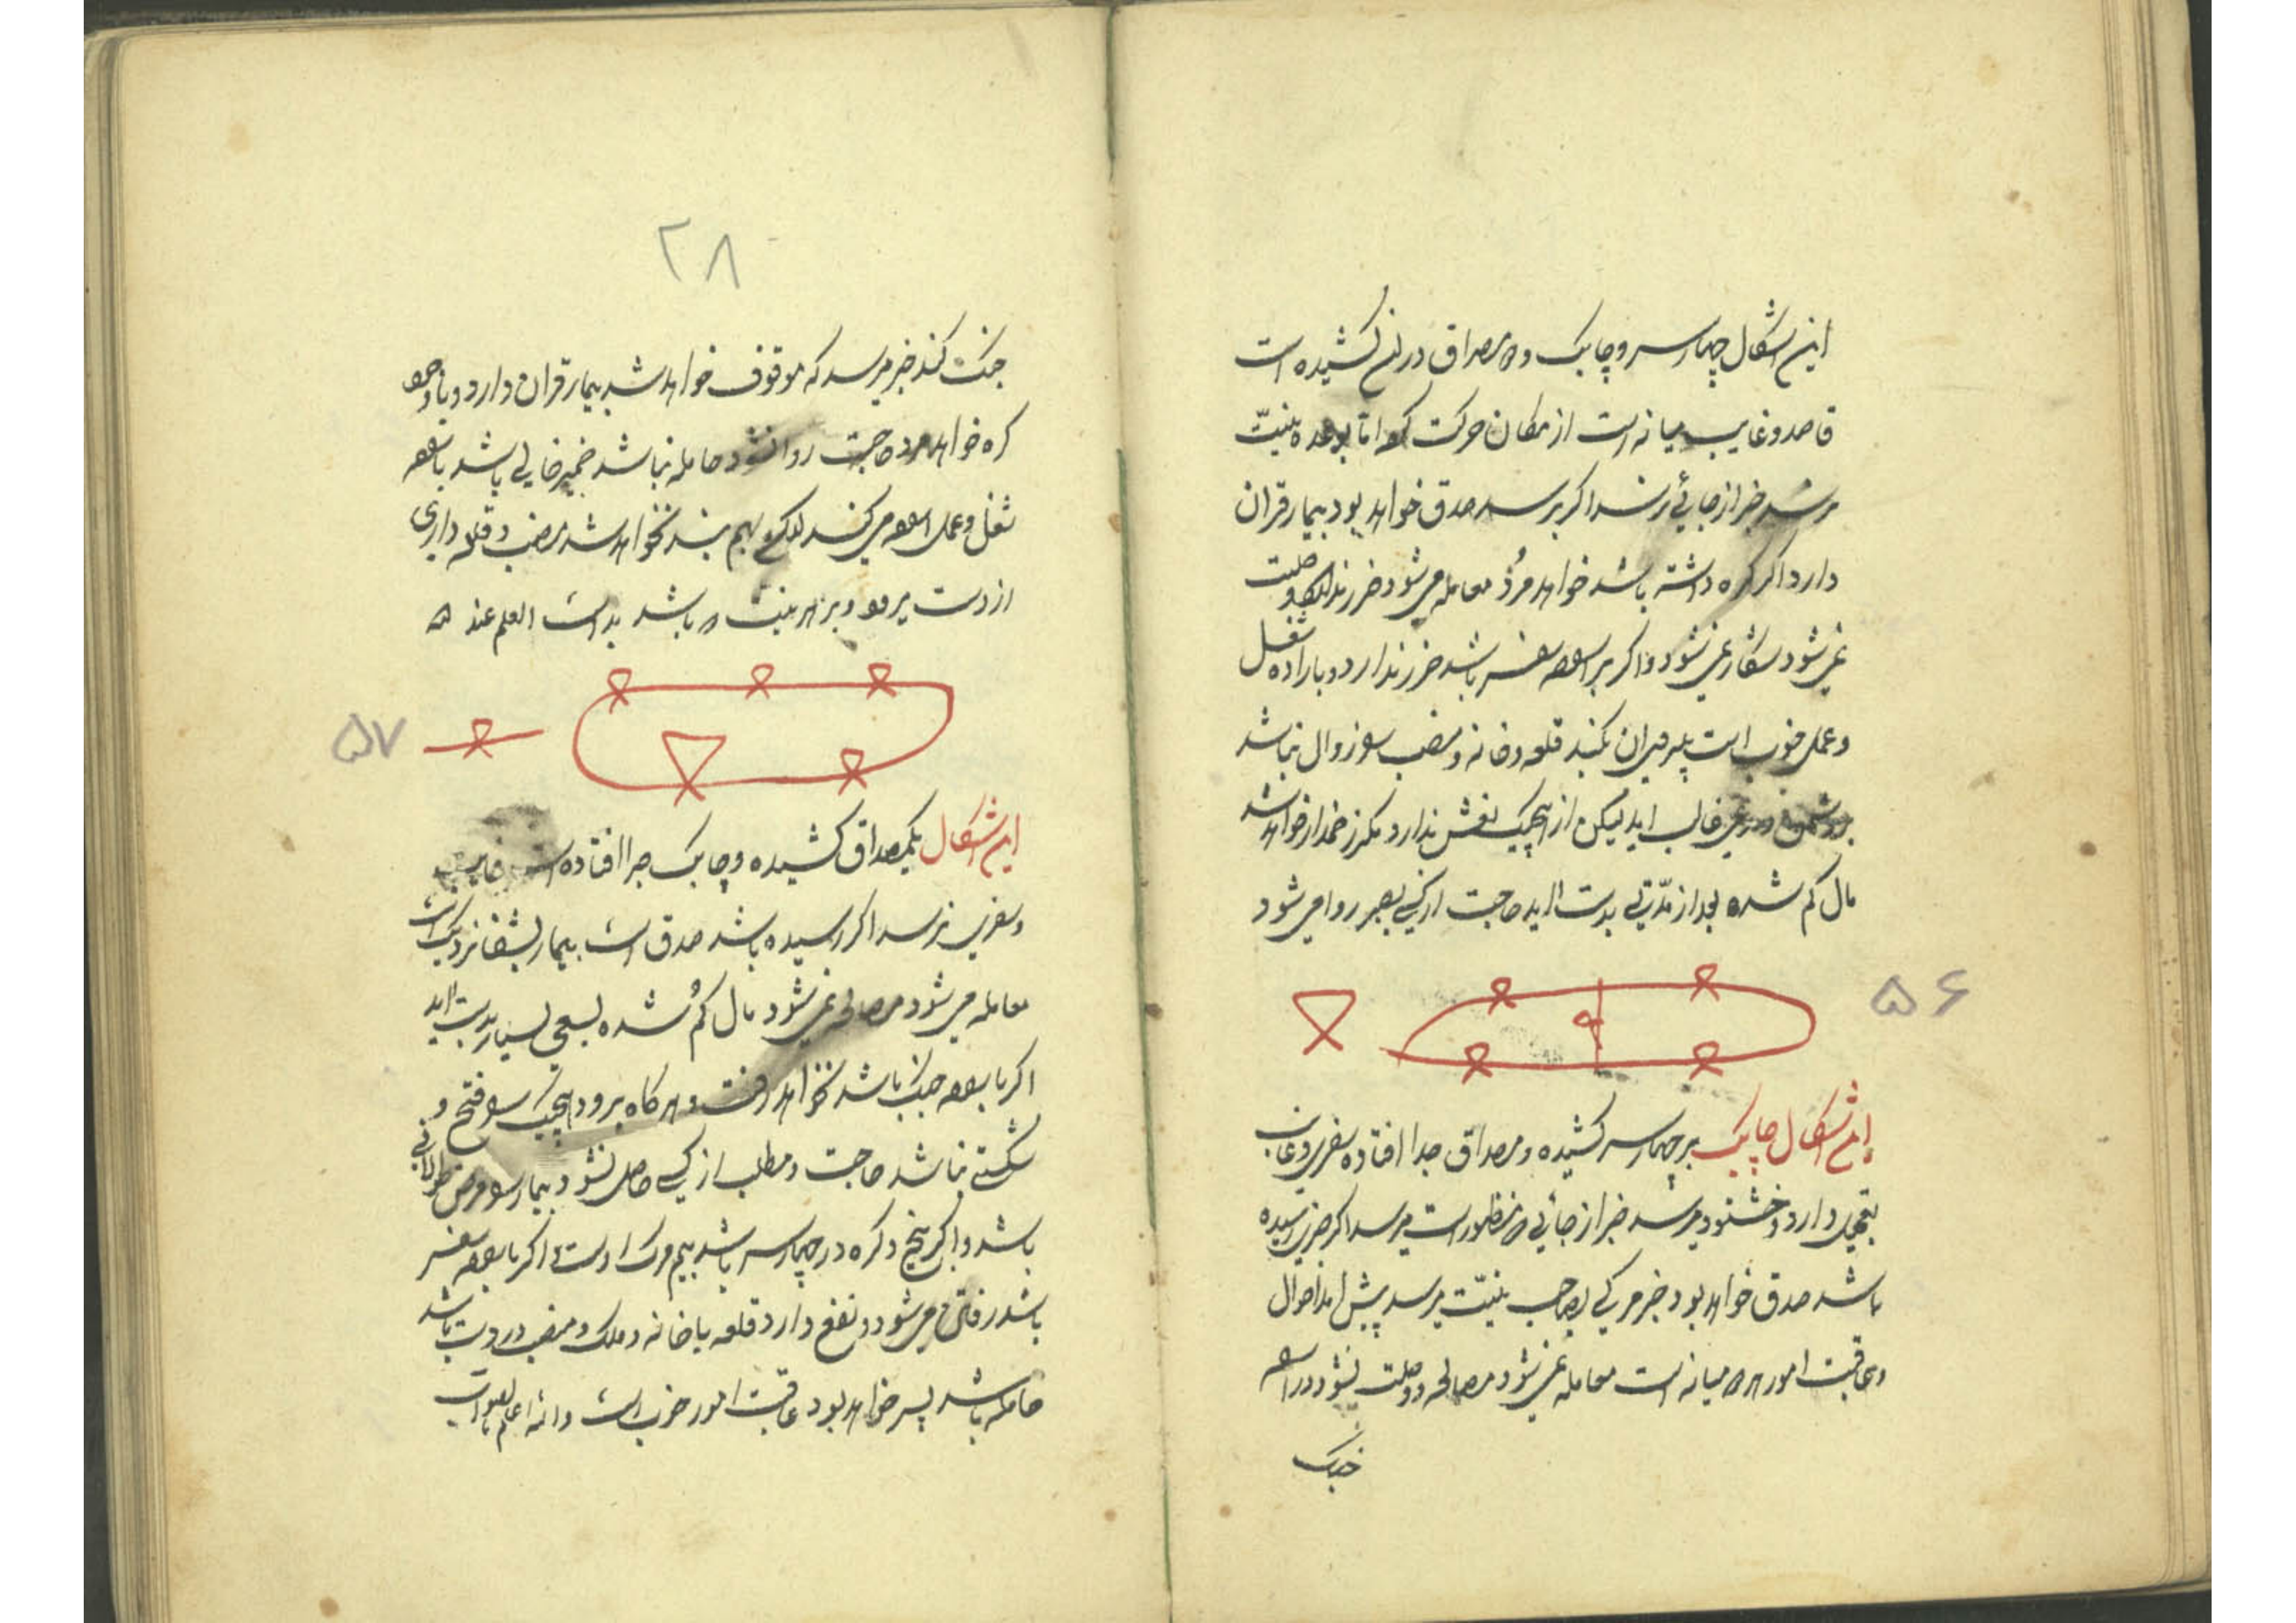 این اشکال چهار سر و چابک و مصداق در کشیده است
قاصد و غایب میانه است از مکان حرکت کرده اما بوعده بنیت
برسد خبر از جائی رسد اگر برسد صدق خواهد بود بیمار قران
دارد اگر کره داشته باشد خواهد مرد معامله می شود وصلت
نمی شود شکار نمی شود و اگر سفر باشد ضرر ندارد و باراده شغل
و عمل خوب است قلعه و خانه و منصب زوال نباشد
غالب اید لیکن از هیچیک نقش ندارد مکر زخمدار خواهد شد
مال کم شده بعد از مدتی بدست اید حاجت از کسی روا می شود
۵۶
این اشکال چابک بر چهار سر کشیده و مصداق جدا افتاده سفری و غایب
تعجیل دارد و خشنود میرسد خبر از جائی منظور است میرسد اگر خبری رسیده
باشد صدق خواهد بود خبر مرکی بصاحب نیت برسد پیش امد احوال
و عاقبت امور میانه است معامله نمی شود مصالحه و وصلت نشود
جنک
۲۸
جنک کند خبر میرسد که موقوف خواهد شد بیمار قران دارد و با وجود
کره خواهد مرد حاجت روا نشود حامله نباشد ضمیر خالی باشد
شغل و عمل می کند بهم نخواهد شد منصب و قلعه داری
از دست میرود و بنیت باشد بداست العلم عند الله
۵۷
این اشکال یک مصداق کشیده و چابک جدا افتاده است غایب
و سفری نرسد اگر رسیده باشد صدق است بیمار بشفا نزدیک است
معامله می شود مصالحه نمی شود مال کم شده بسعی بسیار بدست اید
اگر جنک باشد نخواهد رفت و هرکاه برود هیچیک فتح و
شکستی نباشد حاجت و مطلب از کسی حاصل نشود بیمار مرض طولانی
باشد و اگر پنج و کره در چهار سر باشد بیم مرک است اگر سفر
باشد رفتن می شود و نفع دارد قلعه یا خانه و ملک و منصب در دست باشد
حامله باشد پسر خواهد بود عاقبت امور خوب است والله اعلم بالصواب